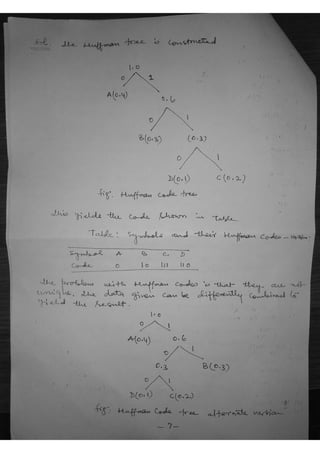 Sol The Huffman tree is constructed
1.0
0 1
A(0.4) 0.6
0 1
B(0.3) (0.3)
0 1
D(0.1) C(0.2)
fig: Huffman code tree
This yields the code shown in Table
Table: Symbols and their Huffman Codes -
Symbol A B C D
Code 0 10 111 110
The problem with Huffman codes is that they are not
unique, The data given can be differently combined to
yield the result.
1.0
0 1
A(0.4) 0.6
0 1
0.3 B(0.3)
0 1
D(0.1) C(0.2)
fig: Huffman Code tree alternate version
-7-